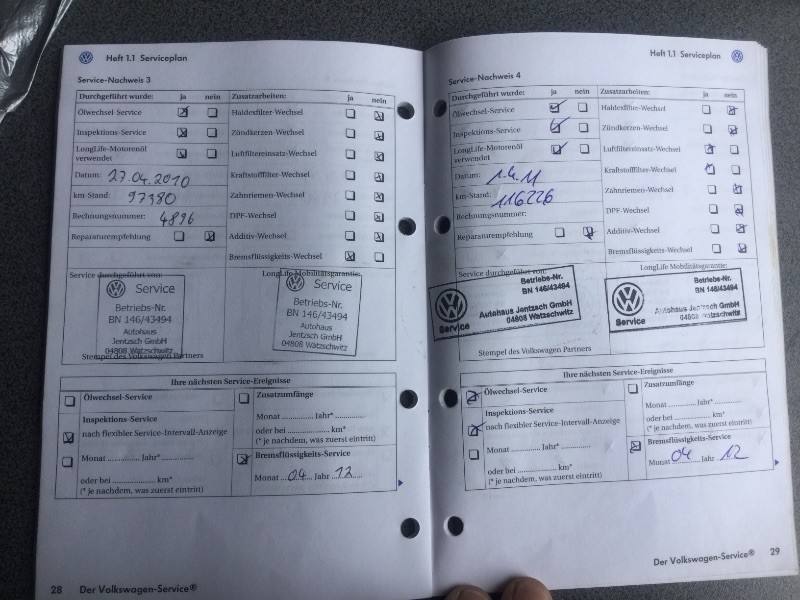 Heft 1.1 Serviceplan
Service-Nachweis 3
Durchgeführt wurde: ja nein
Ölwechsel-Service
Inspektions-Service
LongLife-Motorenöl
verwendet
Datum: 27.04.2010
km-Stand: 97180
Rechnungsnummer: 4896
Reparaturempfehlung
Zusatzarbeiten: ja nein
Haldexfilter-Wechsel
Zündkerzen-Wechsel
Luftfiltereinsatz-Wechsel
Kraftstofffilter-Wechsel
Zahnriemen-Wechsel
DPF-Wechsel
Additiv-Wechsel
Bremsflüssigkeits-Wechsel
Service durchgeführt von:
Service
Betriebs-Nr.
BN 146/43494
Autohaus
Jentzsch GmbH
04808 Watzschwitz
Stempel des Volkswagen Partners
LongLife Mobilitätsgarantie:
Service
Betriebs-Nr.
BN 146/43494
Autohaus
Jentzsch GmbH
04808 Watzschwitz
Ihre nächsten Service-Ereignisse
Ölwechsel-Service
Inspektions-Service
nach flexibler Service-Intervall-Anzeige
Monat Jahr*
oder bei km*
(* je nachdem, was zuerst eintritt)
Zusatzumfänge
Monat Jahr*
oder bei km*
(* je nachdem, was zuerst eintritt)
Bremsflüssigkeits-Service
Monat 04 Jahr 12
28 Der Volkswagen-Service®
Heft 1.1 Serviceplan
Service-Nachweis 4
Durchgeführt wurde: ja nein
Ölwechsel-Service
Inspektions-Service
LongLife-Motorenöl
verwendet
Datum: 1.4.11
km-Stand: 116226
Rechnungsnummer:
Reparaturempfehlung
Zusatzarbeiten: ja nein
Haldexfilter-Wechsel
Zündkerzen-Wechsel
Luftfiltereinsatz-Wechsel
Kraftstofffilter-Wechsel
Zahnriemen-Wechsel
DPF-Wechsel
Additiv-Wechsel
Bremsflüssigkeits-Wechsel
Service durchgeführt von:
Betriebs-Nr.
BN 146/43494
Autohaus Jentzsch GmbH
04808 Watzschwitz
Service
Stempel des Volkswagen Partners
LongLife Mobilitätsgarantie:
Betriebs-Nr.
BN 146/43494
Autohaus Jentzsch GmbH
04808 Watzschwitz
Service
Ihre nächsten Service-Ereignisse
Ölwechsel-Service
Inspektions-Service
nach flexibler Service-Intervall-Anzeige
Monat Jahr*
oder bei km*
(* je nachdem, was zuerst eintritt)
Zusatzumfänge
Monat Jahr*
oder bei km*
(* je nachdem, was zuerst eintritt)
Bremsflüssigkeits-Service
Monat 04 Jahr 12
Der Volkswagen-Service® 29